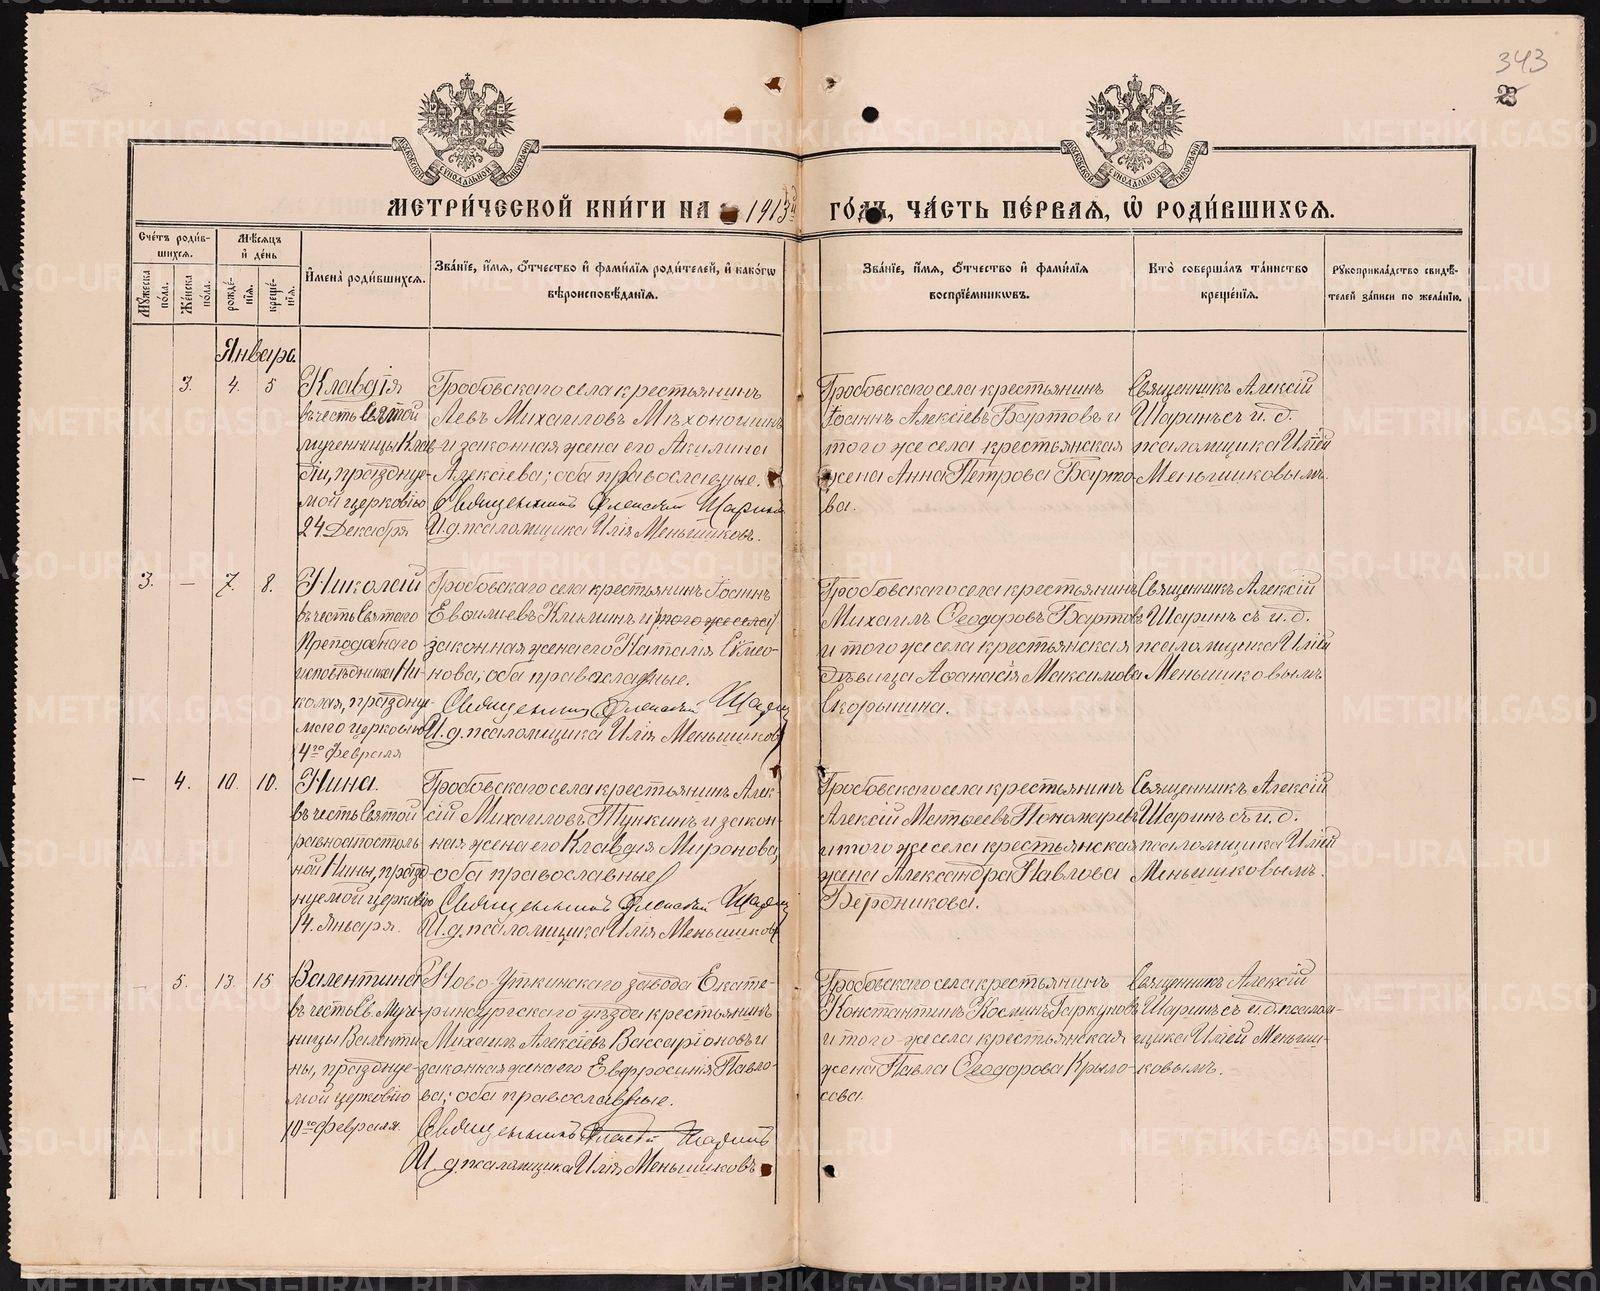 343
МЕТРИ́ЧЕСКОЙ КНИ́ГИ НА 1913й ГО́ДЪ, ЧА́СТЬ ПЕ́РВАЯ, Ѡ҆ РОДИ́ВШИХСЯ.
Сче́тъ роди́в-
шихся.
Мꙋ́жеска
по́ла.
Же́нска
по́ла.
Мѣ́сяцъ
и҆ де́нь
рожде́-
нїя.
креще́-
нїя.
И҆мена̀ роди́вшихся.
Зва́нїе, и҆́мя, ѻ҆́тчество и҆ фами́лїя роди́телей, и҆ како́гѡ
вѣроисповѣ́данїя.
Зва́нїе, и҆́мя, ѻ҆́тчество и҆ фами́лїя
воспрїе́мникѡвъ.
Кто̀ соверша́лъ та́инство
креще́нїя.
Рꙋкоприкла́дство свидѣ́-
телей за́писи по жела́нїю.
Января.
3. 4. 5
Клавдія
въ честь Святой
мученницы Клав-
діи, празднуе-
мой церковію
24 Декабря
Гробовскаго села крестьянинъ
Левъ Михаиловъ Мѣхоношинъ
и законная жена его Акилина
Алексіева; оба православные.
Священникъ Алексій Шаринъ
И.д. псаломщика Илія Меньшиковъ.
Гробовскаго села крестьянинъ
Іоаннъ Алексіевъ Бартовъ и
того же села крестьянская
жена Анна Петрова Барто-
ва.
Священникъ Алексій
Шаринъ съ и.д.
псаломщика Иліей
Меньшиковымъ.
3. — 7. 8.
Николай
въ честь Святаго
Преподобнаго
исповѣдника Ни-
колая, праздну-
емаго церковью
4го Февраля
Гробовскаго села крестьянинъ Іоаннъ
Евфиміевъ Климинъ и (того же села)
законная жена его Наталія Сѵмео-
нова; оба православные.
Священникъ Алексій Шаринъ
И.д. псаломщика Илія Меньшиковъ
Гробовскаго села крестьянинъ
Михаилъ Ѳеодоровъ Бартовъ
и того же села крестьянская
дѣвица Аѳанасія Максимова
Скорынина.
Священникъ Алексій
Шаринъ съ и.д.
псаломщика Иліей
Меньшиковымъ
— 4. 10. 10.
Нина.
въ честь Святой
равноапостоль-
ной Нины, празд-
нуемой церковію
14. Января.
Гробовскаго села крестьянинъ Алек-
сій Михаиловъ Тункинъ и закон-
ная жена его Клавдія Миронова;
оба православные
Священникъ Алексій Шаринъ
И.д. псаломщика Илія Меньшиковъ
Гробовскаго села крестьянинъ
Алексій Матѳеевъ Пономаревъ
и того же села крестьянская
жена Александра Павлова
Бердникова.
Священникъ Алексій
Шаринъ съ и.д.
псаломщика Иліей
Меньшиковымъ.
— 5. 13. 15
Валентина
въ честь Св. Муче-
ницы Валенти-
ны, празднуе-
мой церковію
10го Февраля.
Ново-Уткинскаго завода Екате-
ринбургскаго уѣзда крестьянинъ
Михаилъ Алексіевъ Вассаріоновъ и
законная жена его Евфросинія Павло-
ва; оба православные.
Священникъ Алексій Шаринъ
И.д. псаломщика Илія Меньшиковъ
Гробовскаго села крестьянинъ
Константинъ Косминъ Гаркуновъ
и того-же села крестьянская
жена Павла Ѳеодорова Крыло-
сова.
Священникъ Алексій
Шаринъ съ и.д. псалом-
щика Иліей Меньши-
ковымъ.
METRIKI.GASO-URAL.RU